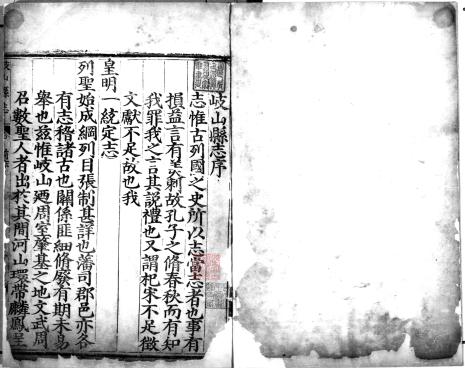 岐山縣志序
志惟古列國之史所以志當志者也事有
損益言有美刺故孔子之脩春秋而有知
我罪我之言其説禮也又謂杞宋不足徵
文獻不足故也我
皇明一統定志
列聖始成綱列目張制甚詳也藩司郡邑亦各
有志稽諸古也關係匪細脩廢有期未易
舉也茲惟岐山廼周室肇基之地文武周
召數聖人者出於其間河山環帶麟鳳呈